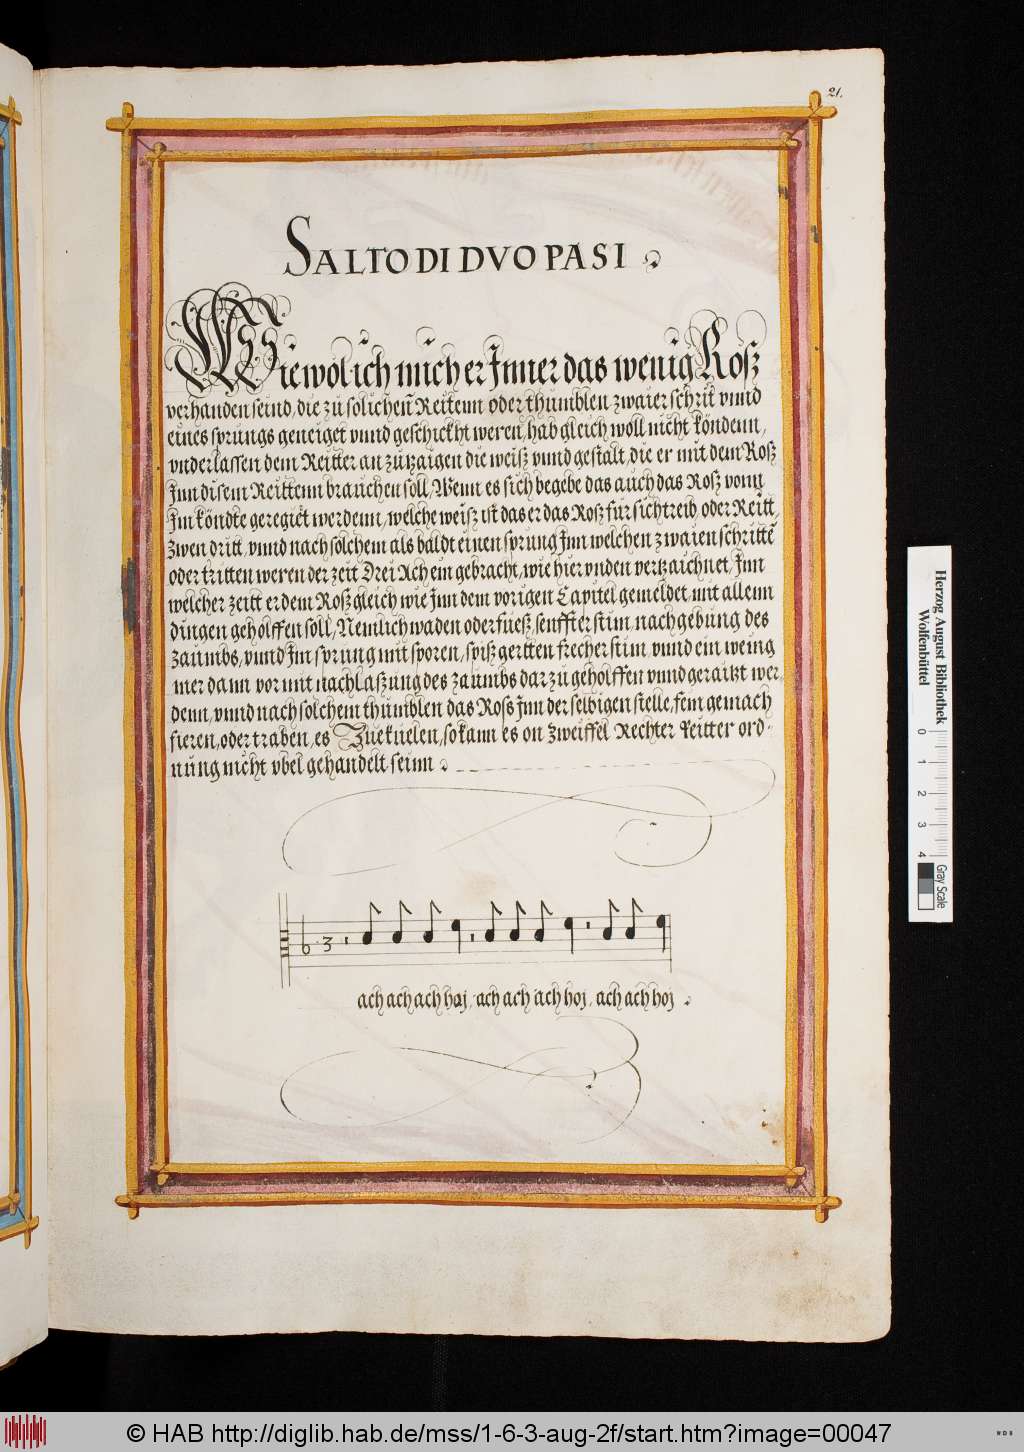 21.
SALTO DI DVO PASI
Wiewol ich mich er Inner das wenig Roß
verhanden seind, die zu solichen̄ Reitenn oder thumblen zwaier schrit vnnd
eines sprungs geneiget vnnd geschickht weren, hab gleich woll nicht köndenn,
vnderlassen dem Reitter an zutzaigen die weiß vnnd gestalt, die er mit dem Roß
Inn disem Reittenn brauchen soll, Wenn es sich begebe das auch das Roß vonn
Im köndte geregiert werdenn, welche weiß ist das er das Roß für sich treib, oder Reitt,
Zwen dritt, vnnd nach solchem als baldt einen sprung Inn welchen zwaien schritten̄
oder tritten weren der zeit Drei Ach ein gebracht, wie hier vnden vertzaichnet, Inn
welcher zeitt er dem Roß gleich wie Inn dem vorigen Capitel gemeldet mit allenn
dingen geholffen soll, Nemlich waden oder fueß, senffter stim, nachgebung des
Zaumbs, vnnd Im sprung mit sporen, spißgertten frecher stim, vnnd ein wenig
mer dann vor mit nachlaßzung des zaumbs darzu geholffen vnnd geraitzt wer
denn, vnnd nach solchem thumblen das Roß Inn der selbigen stelle, fein gemach
fieren, oder traben, es Zueknelen, so kann es on zweiffel Rechter Reitter ord=
nung nicht vbel gehandelt seinn
3
ach ach ach hoj, ach ach ach hoj, ach ach hoj
Herzog August Bibliothek
Wolfenbüttel
0 1 2 3 4
Gray Scale
© HAB http://diglib.hab.de/mss/1-6-3-aug-2f/start.htm?image=00047